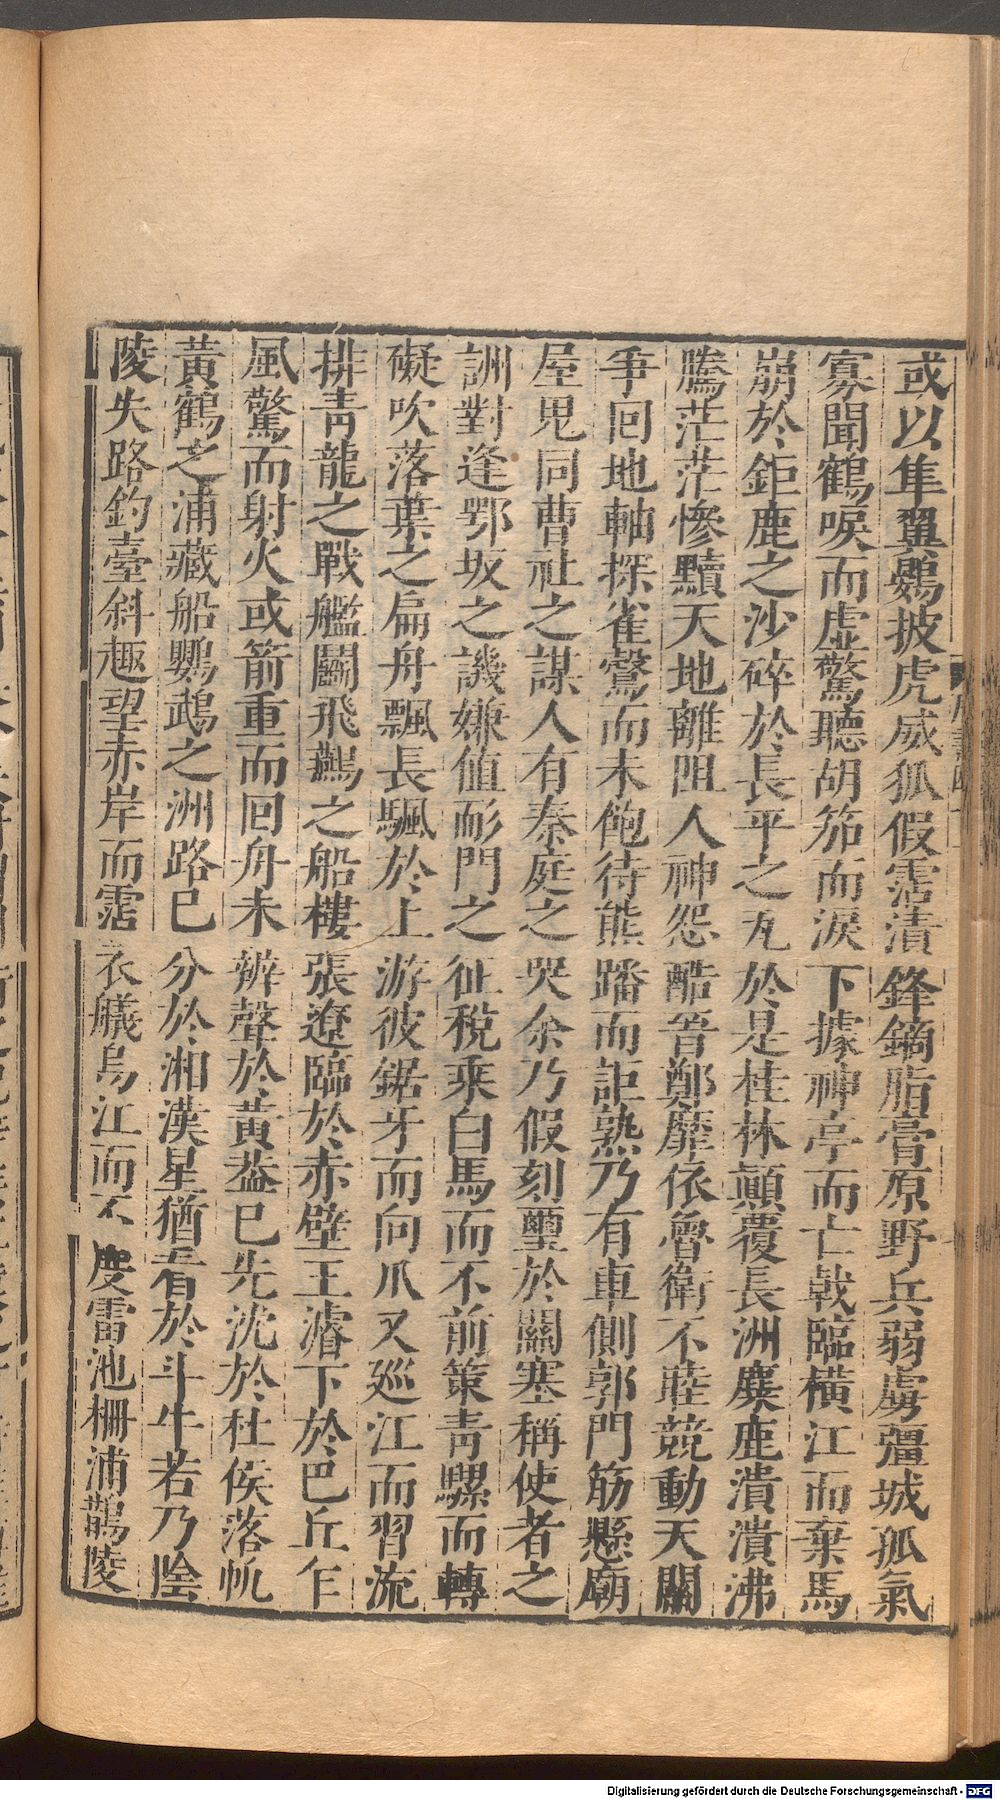 或以隼翼鷃披虎威狐假霑漬鋒鏑脂膏原野兵弱虜彊城孤氣
寡聞鶴唳而虛驚聽胡笳而淚下據神亭而亡戟臨橫江而棄馬
崩於鉅鹿之沙碎於長平之瓦於是桂林顛覆長洲麋鹿潰潰沸
騰茫茫慘黷天地離阻人神怨酷晉鄭靡依魯衛不睦競動天關
爭回地軸探雀鷇而未飽待熊蹯而詎熟乃有車側郭門筋懸廟
屋鬼同曹社之謀人有秦庭之哭余乃假刻璽於關塞稱使者之
詶對逢鄂坂之譏嫌值耏門之征稅乘白馬而不前策青騾而轉
礙吹落葉之扁舟飄長颿於上游彼鋸牙而向爪又巡江而習流
排青龍之戰艦鬭飛鷰之船樓張遼臨於赤壁王濬下於巴丘乍
風驚而射火或箭重而回舟未辨聲於黃葢已先沈於杜侯落帆
黃鶴之浦藏船鸚鵡之洲路已分於湘漢星猶看於斗牛若乃陰
陵失路釣臺斜趣望赤岸而霑衣艤烏江而不度雷池柵浦鵲陵
Digitalisierung gefördert durch die Deutsche Forschungsgemeinschaft - DFG